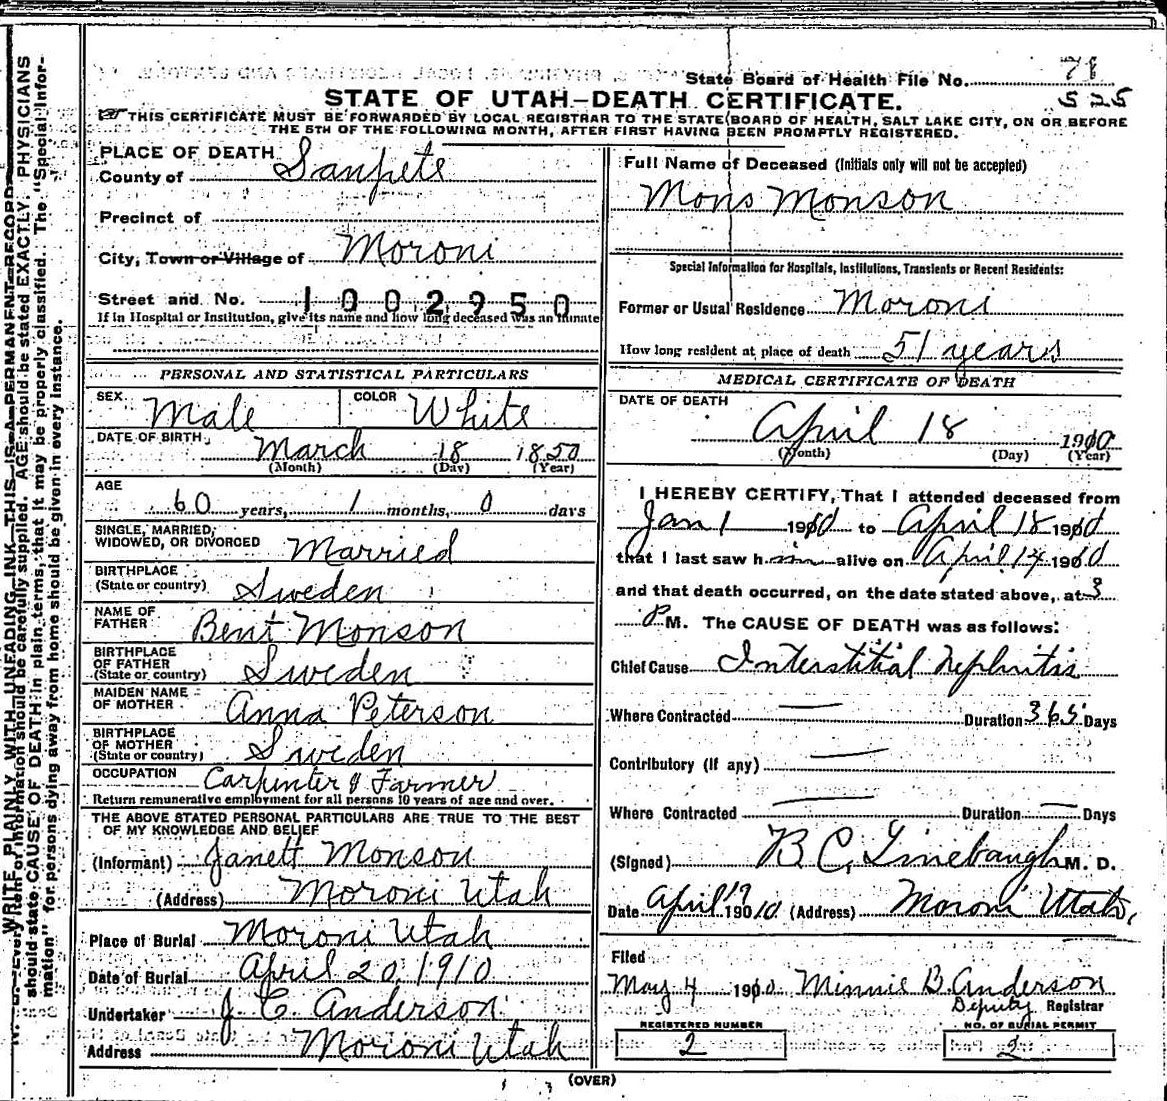 State Board of Health File No. 78
525
STATE OF UTAH—DEATH CERTIFICATE.
THIS CERTIFICATE MUST BE FORWARDED BY LOCAL REGISTRAR TO THE STATE BOARD OF HEALTH, SALT LAKE CITY, ON OR BEFORE
THE 5TH OF THE FOLLOWING MONTH, AFTER FIRST HAVING BEEN PROMPTLY REGISTERED.
PLACE OF DEATH
County of Sanpete
Precinct of
City, Town or Village of Moroni
Street and No. 1002950
If in Hospital or Institution, give its name and how long deceased was an inmate
PERSONAL AND STATISTICAL PARTICULARS
SEX Male COLOR White
DATE OF BIRTH March 18 1850
(Month) (Day) (Year)
AGE
60 years, 1 months, 0 days
SINGLE, MARRIED,
WIDOWED, OR DIVORCED Married
BIRTHPLACE
(State or country) Sweden
NAME OF
FATHER Bent Monson
BIRTHPLACE
OF FATHER
(State or country) Sweden
MAIDEN NAME
OF MOTHER Anna Peterson
BIRTHPLACE
OF MOTHER
(State or country) Sweden
OCCUPATION Carpenter & Farmer
Return remunerative employment for all persons 10 years of age and over.
THE ABOVE STATED PERSONAL PARTICULARS ARE TRUE TO THE BEST
OF MY KNOWLEDGE AND BELIEF
(Informant) Janett Monson
(Address) Moroni Utah
Place of Burial Moroni Utah
Date of Burial April 20, 1910
Undertaker J. C. Anderson
Address Moroni Utah
Full Name of Deceased (Initials only will not be accepted)
Mons Monson
Special Information for Hospitals, Institutions, Transients or Recent Residents:
Former or Usual Residence Moroni
How long resident at place of death 51 years
MEDICAL CERTIFICATE OF DEATH
DATE OF DEATH
April 18 1910
(Month) (Day) (Year)
I HEREBY CERTIFY, That I attended deceased from
Jan 1 1910 to April 18 1910
that I last saw him alive on April 14 1910
and that death occurred, on the date stated above, at 3
P M. The CAUSE OF DEATH was as follows:
Chief Cause Interstitial Nephritis
Where Contracted — Duration 365 Days
Contributory (if any) —
Where Contracted — Duration — Days
(Signed) B C, Linebaugh M. D.
Date April 19 1910 (Address) Moroni Utah,
Filed
May 4 1910 Minnie B. Anderson
Deputy Registrar
REGISTERED NUMBER
2
NO. OF BURIAL PERMIT
2
(OVER)
WRITE PLAINLY WITH UNFADING INK—THIS IS A PERMANENT RECORD
N. B.—Every item of information should be carefully supplied. AGE should be stated EXACTLY. PHYSICIANS
should state CAUSE OF DEATH in plain terms, that it may be properly classified. The "Special Infor-
mation" for persons dying away from home should be given in every instance.